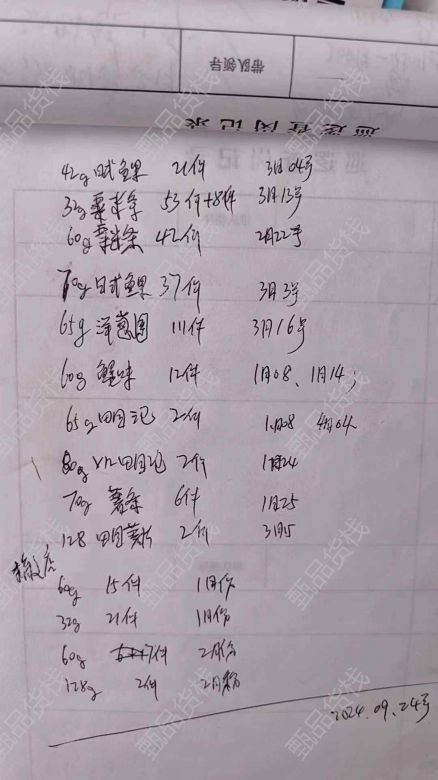 带队领导
巡逻查岗记录
42g日式鱼果 21件 3月04号
32g粟米条 53件+8件 3月13号
60g粟米条 42件 2月22号
70g日式鱼果 37件 3月3号
65g洋葱圈 111件 3月16号
60g蟹味 12件 1月08、1月14;
65g 田田记 2件 1月08 4月04
80g 田田记 2件 1月24
70g 薯条 6件 1月25
128 田田薯片 2件 3月5
60g 15件 1月份
32g 21件 1月份
60g 7件 2月份
128g 2件 2月份
2024.09.24号
甄品货栈